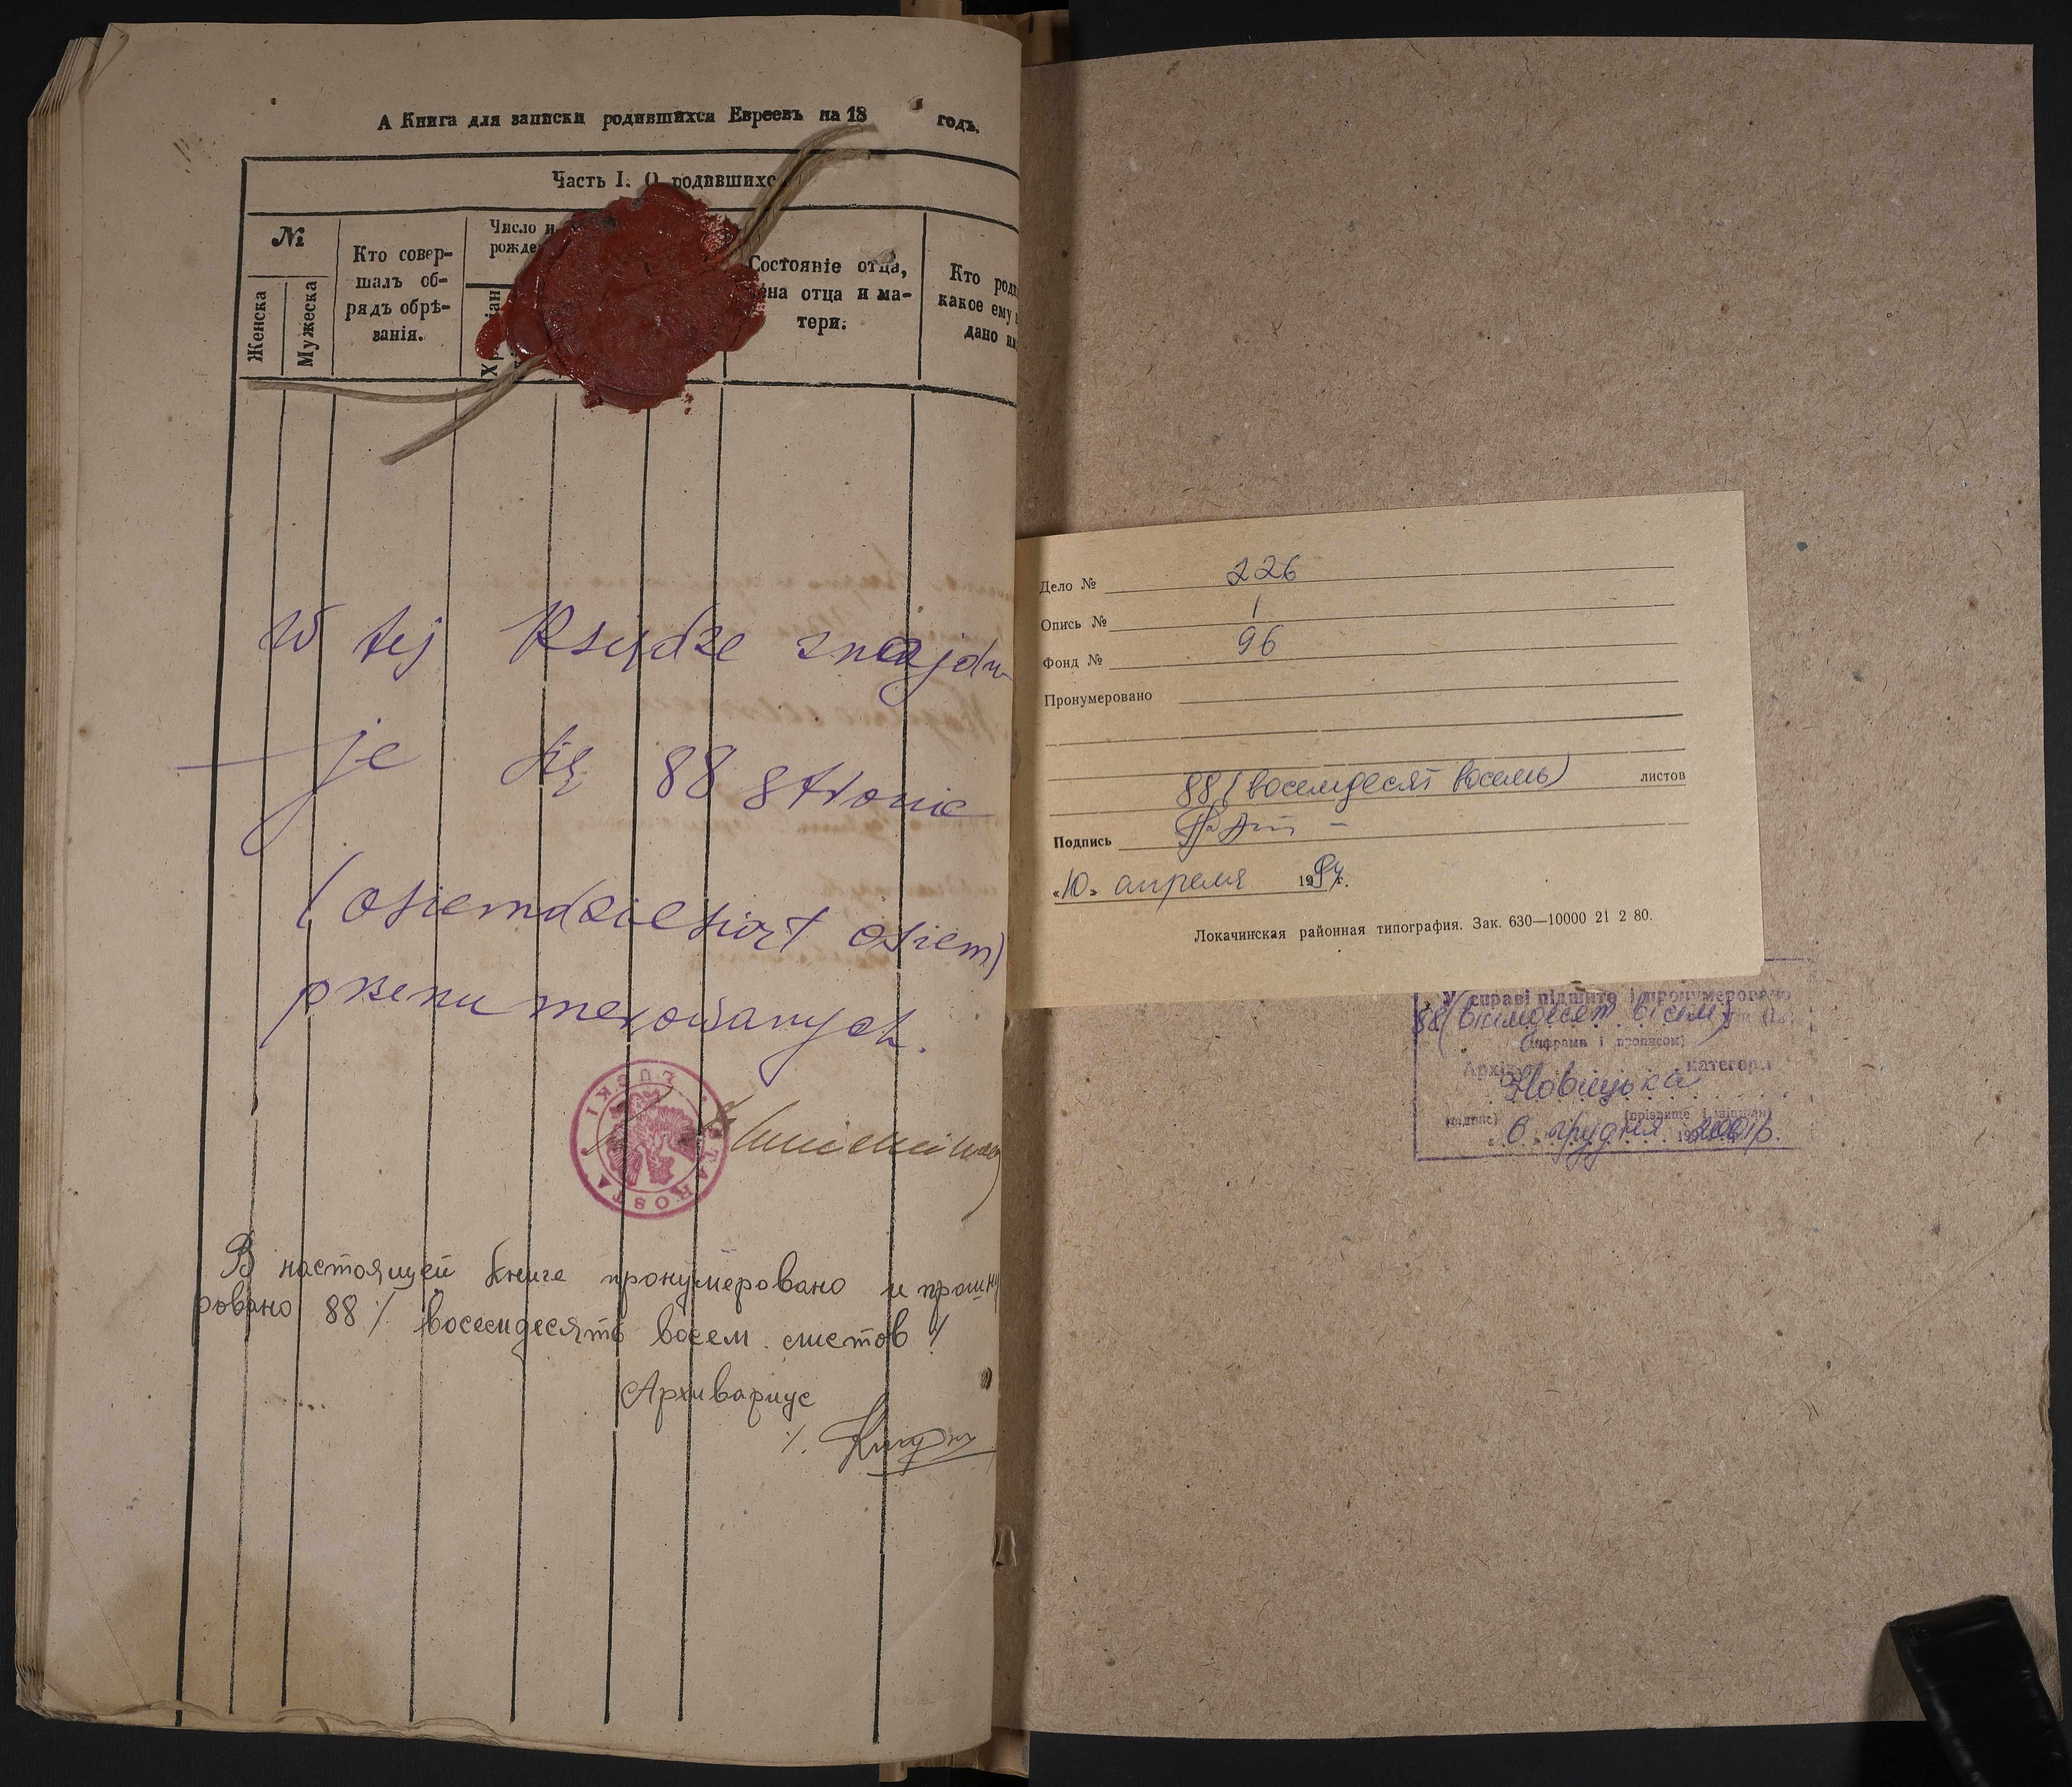 А Книга для записки родившихся Евреевъ на 18 годъ.
Часть I. О родившихс
№
Женска
Мужеска
Кто совер-
шалъ об-
рядъ обрѣ-
занія.
Число и
рожде
Состояніе отца,
ена отца и ма-
тери.
Кто роди
какое ему
дано им
W tej Księdze znajdu
je się 88 stronic
(osiemdziesiąt osiem)
przenumerowanych.
STAROSTA ŁUCKI
В настоящей книге пронумеровано и прошну
ровано 88 /. восемдесять восем листов /
Архивариус
Дело № 226
Опись № 1
Фонд № 96
Пронумеровано
88 (восемдесят восемь) листов
Подпись
«10» апреля 19 г.
Локачинская районная типография. Зак. 630—10000 21 2 80.
У справі підшито і пронумеровано
88 (вісімдесят вісім)
(цифрами і прописом)
Архів категорі
Новіцька
(підпис) (прізвище і ініціали)
6 грудня 2001 р.